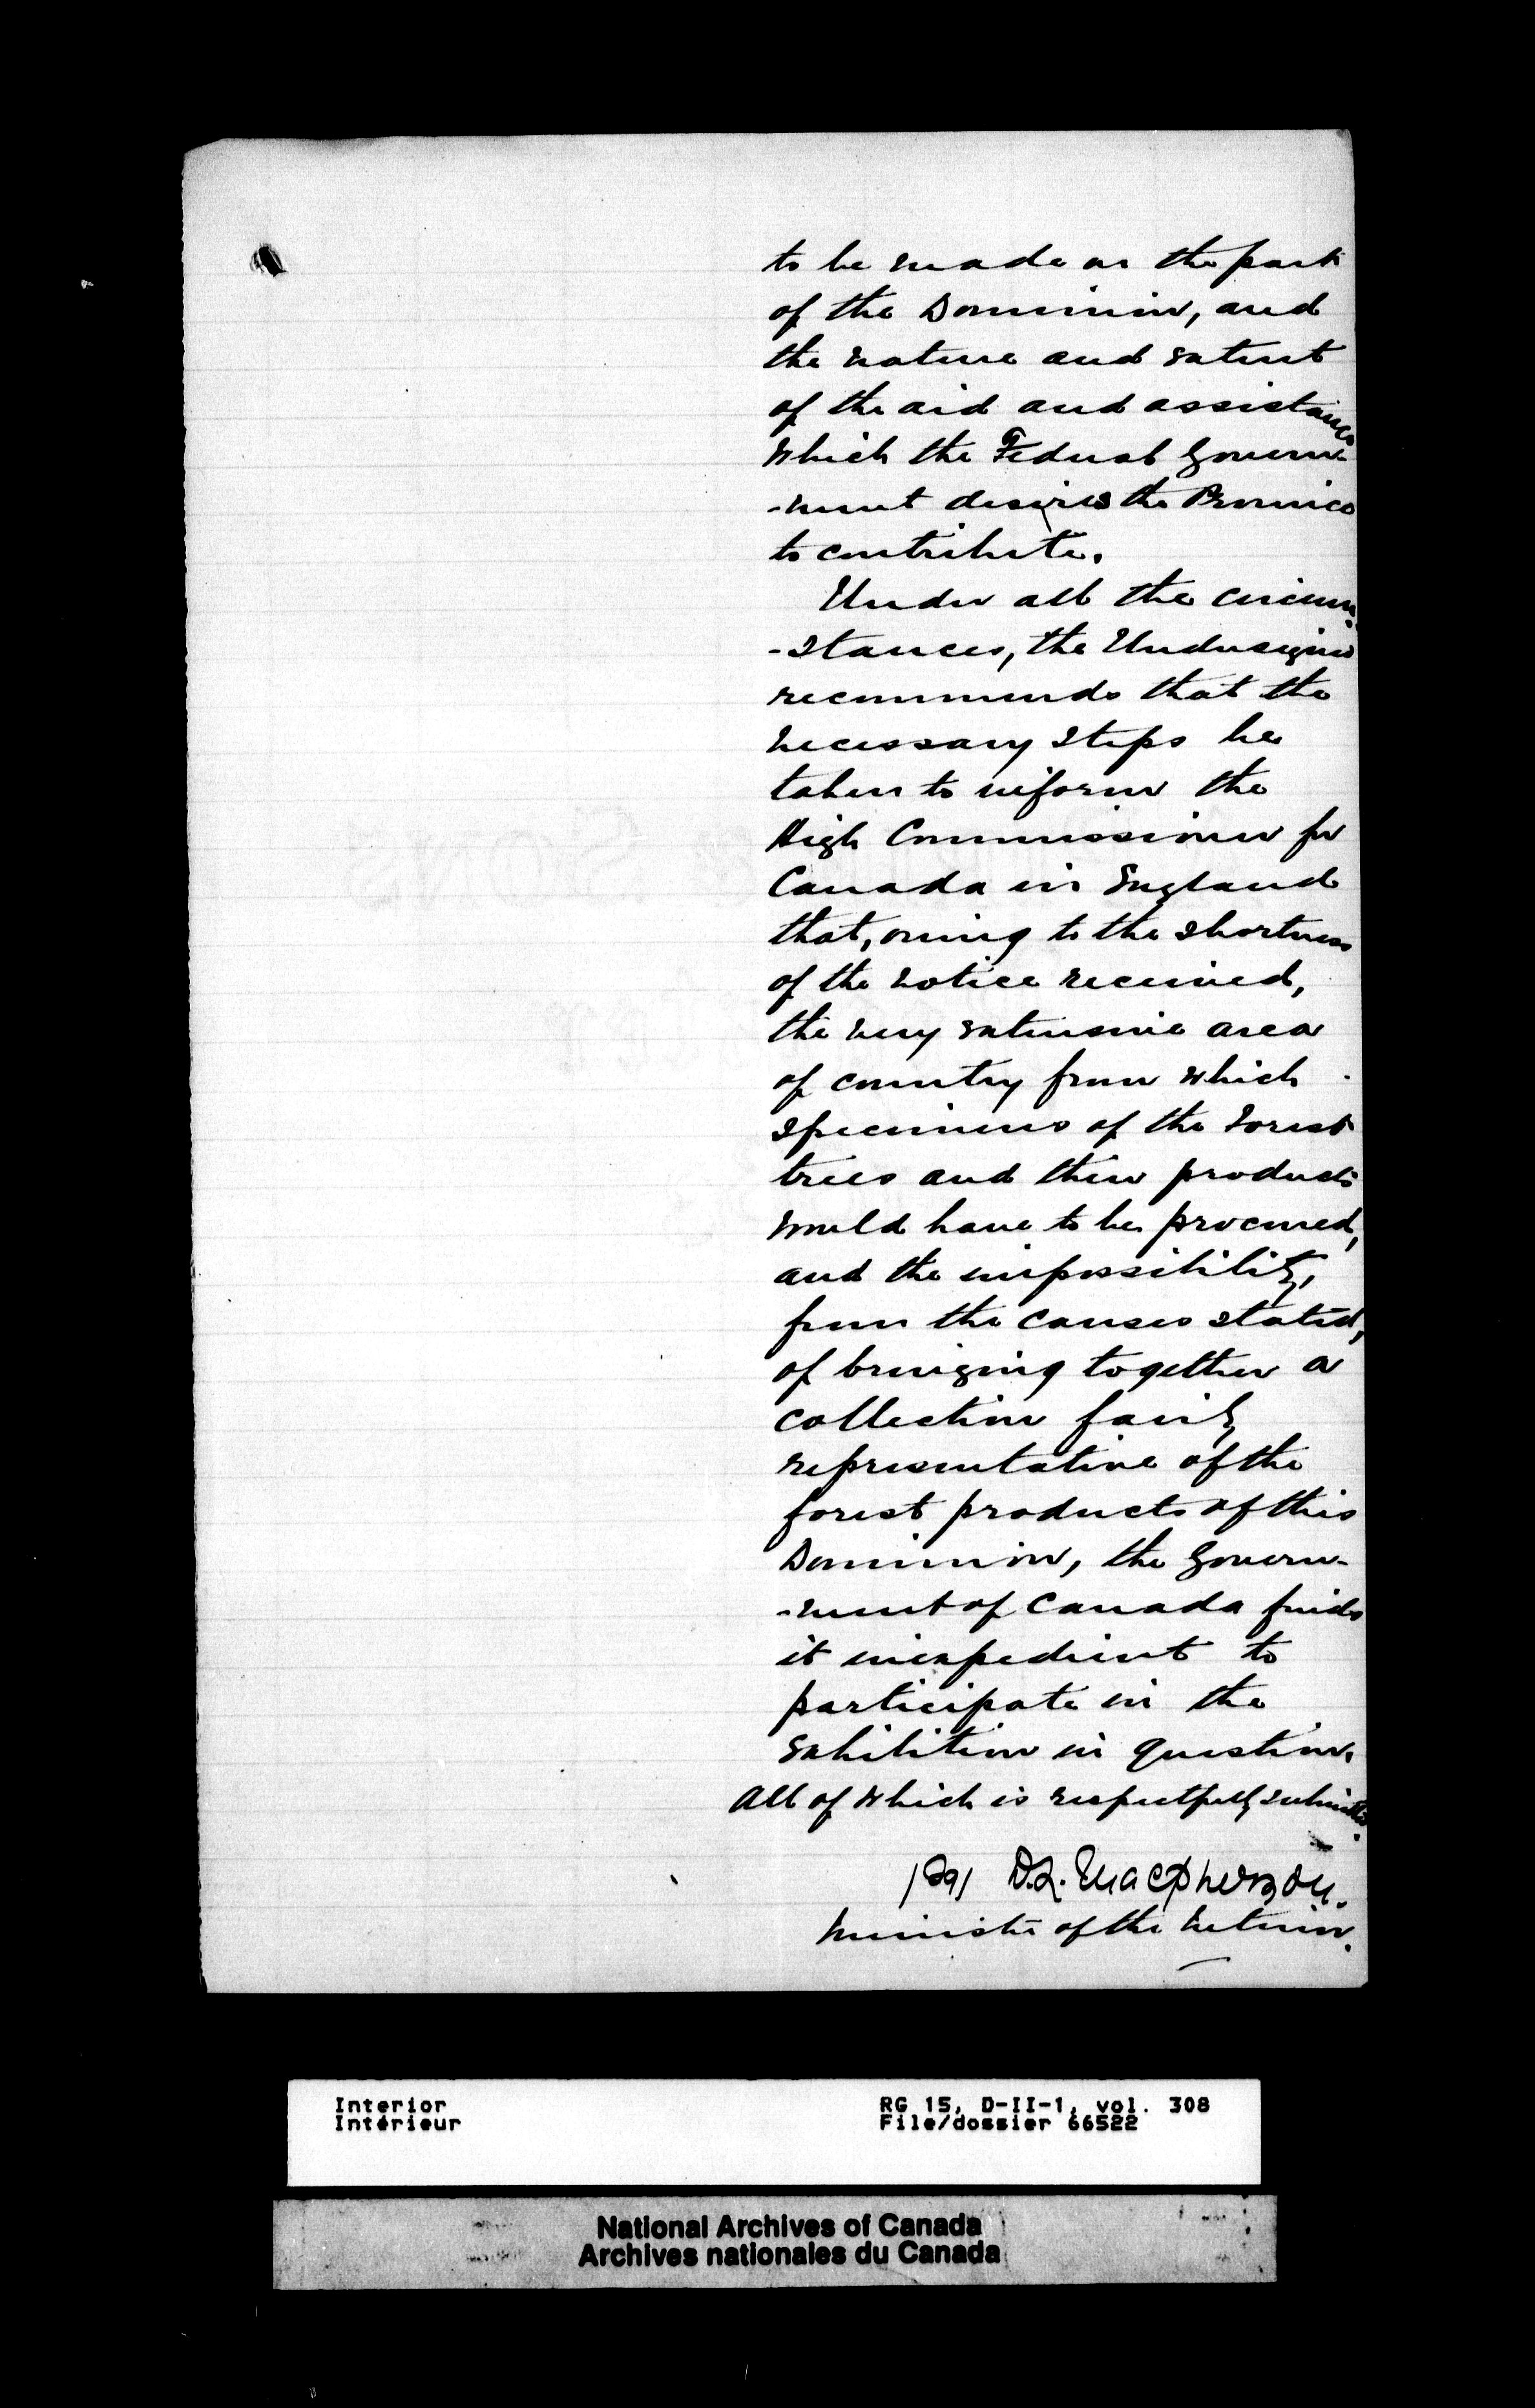 to be made on the part
of the Dominion, and
the nature and extent
of the aid and assistance
which the Federal Govern-
-ment desires the Province
to contribute.
Under all the circum-
-stances, the Undersigned
recommends that the
necessary steps be
taken to inform the
High Commissioner for
Canada in England
that, owing to the shortness
of the notice received,
the very extensive area
of country from which
specimens of the forest
trees and their products
would have to be procured,
and the impossibility,
from the causes stated,
of bringing together a
collection fairly
representative of the
forest products of this
Dominion, the Govern-
-ment of Canada finds
it inexpedient to
participate in the
Exhibition in question.
All of which is respectfully submitted.
D.L. Macpherson.
Minister of the Interior.
Interior RG 15, D-II-1, vol. 308
Intérieur File/dossier 66522
National Archives of Canada
Archives nationales du Canada